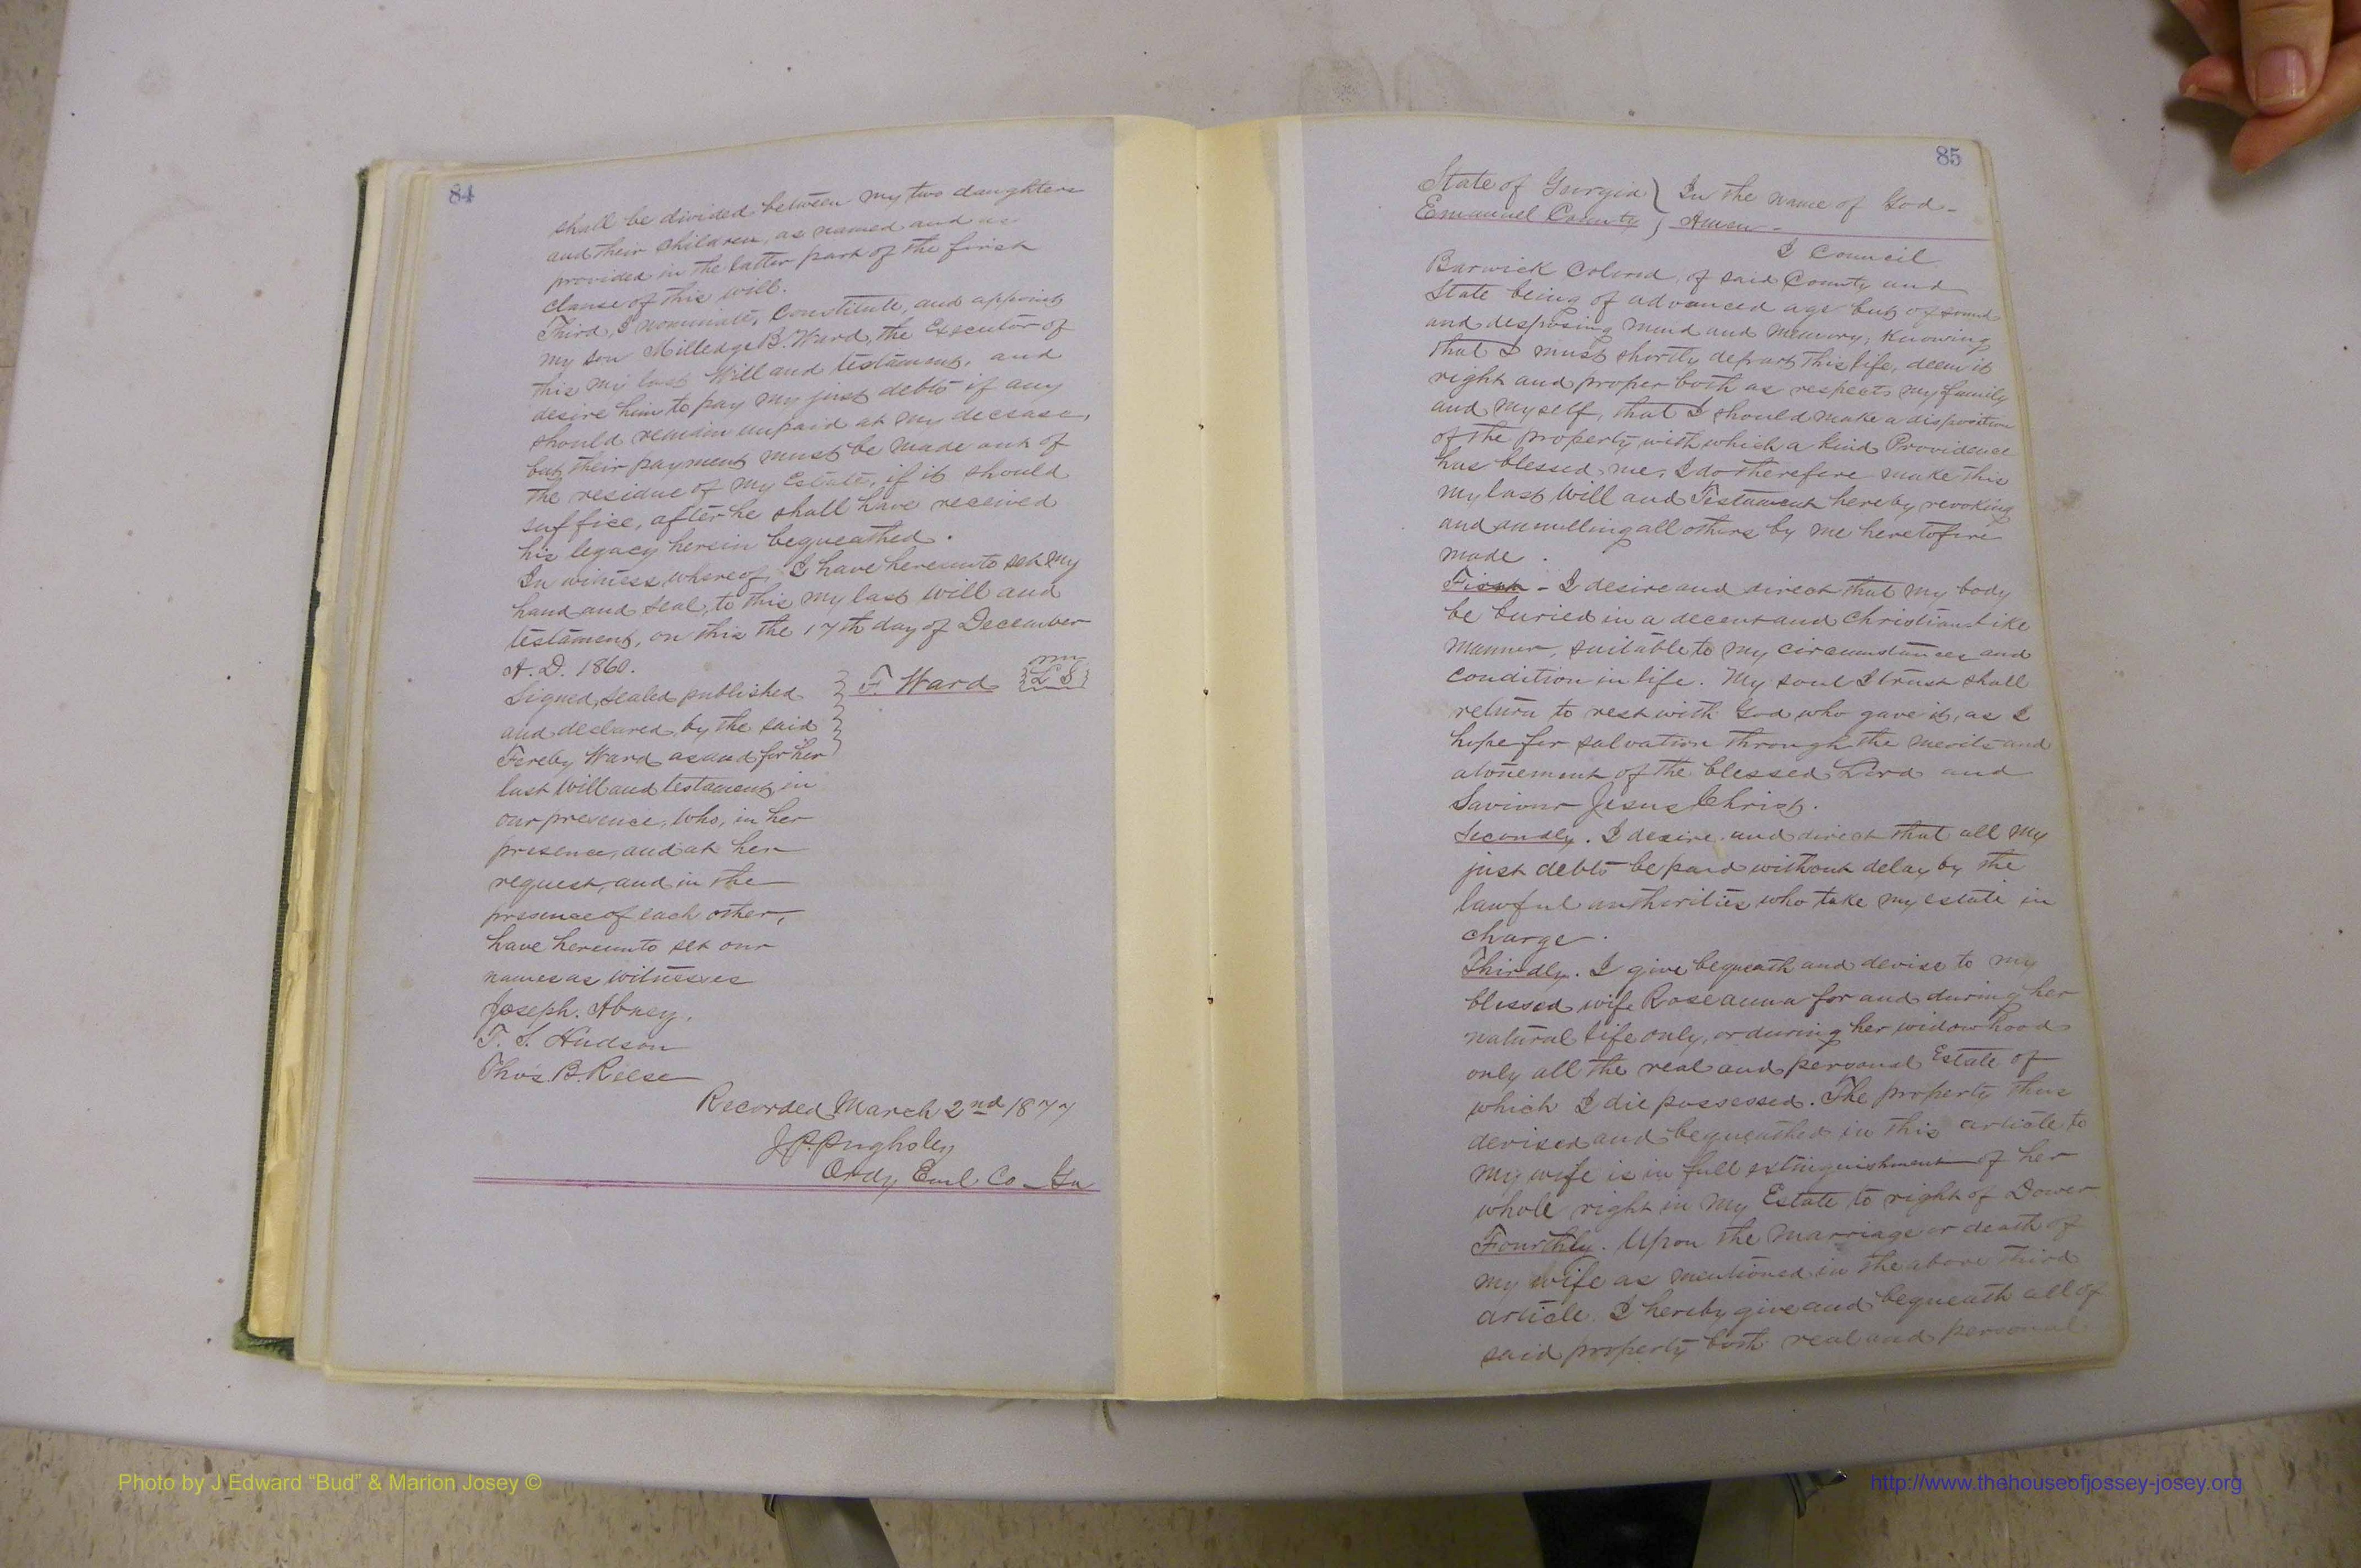 84
shall be divided between my two daughters
and their children, as named and as
provided in the latter part of the first
clause of this will.
Third, I nominate, Constitute, and appoint
my son Milledge B. Ward, the Executor of
this my last Will and testament, and
desire him to pay my just debts if any
should remain unpaid at my decease,
but their payment must be made out of
the residue of my Estate, if it should
suffice, after he shall have received
his legacy herein bequeathed.
In witness whereof, I have hereunto set my
hand and seal, to this my last will and
testament, on this the 17th day of December
A. D. 1860.
Signed, sealed published F. Ward L S
and declared, by the said
Fereby Ward as and for her
last Will and testament, in
our presence, who, in her
presence, and at her
request, and in the
presence of each other,
have hereunto set our
names as witnesses
Joseph. Abney.
T. S. Hudson
Thos. B. Reese
Recorded March 2nd 1877
Ordy Eml. Co Ga
85
State of Georgia } In the name of God -
Emanuel County } Amen -
I Council
Barwick Colored, of said County and
State being of advanced age but of sound
and desposing mind and memory, knowing
that I must shortly depart this life, deem it
right and proper both as respects my family
and myself, that I should make a disposition
of the property with which a kind Providence
has blessed me, I do therefore make this
my last Will and Testament hereby revoking
and annulling all others by me heretofore
made.
First - I desire and direct that my body
be buried in a decent and Christian like
manner, suitable to my circumstances and
condition in life. My soul I trust shall
return to rest with God who gave it, as I
hope for salvation through the merits and
atonement of the blessed Lord and
Saviour Jesus Christ.
Secondly. I desire and direct that all my
just debts be paid without delay by the
lawful authorities who take my estate in
charge.
Thirdly. I give bequeath and devise to my
blessed wife Roseanna for and during her
natural life only, or during her widowhood
only all the real and personal Estate of
which I die possessed. The property thus
devised and bequeathed in this article to
my wife is in full extinguishment of her
whole right in my Estate to right of Dower
Fourthly. Upon the marriage or death of
my wife as mentioned in the above third
article. I hereby give and bequeath all of
said property both real and personal
Photo by J Edward “Bud” & Marion Josey ©
http://www.thehouseofjossey-josey.org